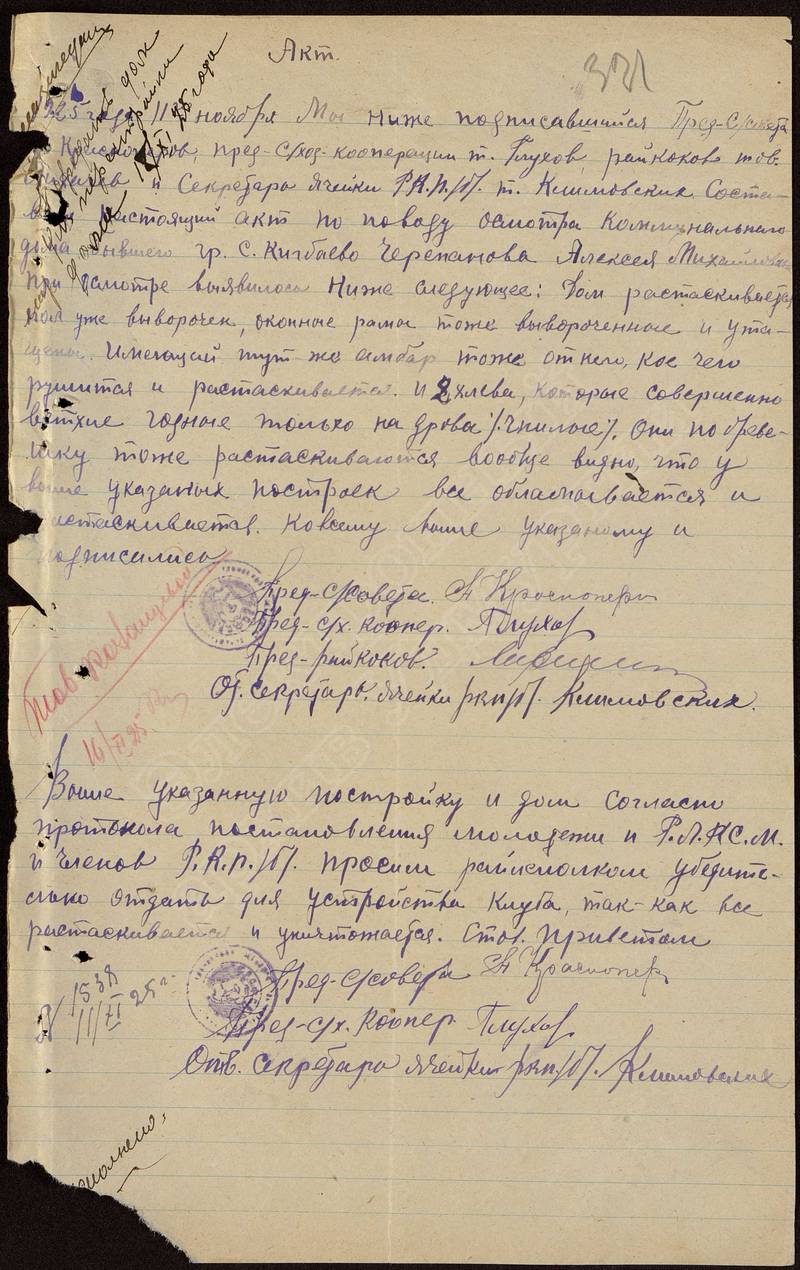 Акт.
331
1925 года 11 ноября Мы ниже подписавшийся Пред-С/совета
пред-С/хоз-кооперации т. Глухов, райкоков тов.
и Секретарь ячейки Р.К.П./б/. т. Климовских Соста-
настоящий акт по поводу осмотра Коммунального
дома бывшего гр. С. Кигбаево Черепанова Алексея Михайлов
При осмотре выявилось ниже следующее: Дом растаскивается
пол уже выворочен, оконные рамы тоже вывороченные и ута-
щены. Имеющий тут-же амбар тоже от него, кое чего
рушится и растаскивается. И 2 хлева, которые совершенно
ветхие годные только на дрова /гнилые/. Они по бреве-
шку тоже растаскиваются вообще видно, что у
выше указаных построек все обламывается и
растаскивается. К всему выше указаному и
подписались
Пред-С/Совета. А Красноперов
Пред-с/х. коопер. Глухов
Пред-райкоков.
От. секретарь ячейки ркп/б/. Климовских.
Тов.
16/XI 25.
Выше указанную постройку и дом согласно
протокола, постановления молодежи и Р.Л.К.С.М.
и членов Р.К.П./б/. просим райисполком убедите-
льно отдать для устройства Клуба, так-как все
растаскивается и уничтожается. С тов. приветом
Пред-С/совета А Красноперов
Пред-с/х. Коопер. Глухов
Отв. секретарь ячейки ркп/б/. Климовских
N 1538
11/XI 25 г.